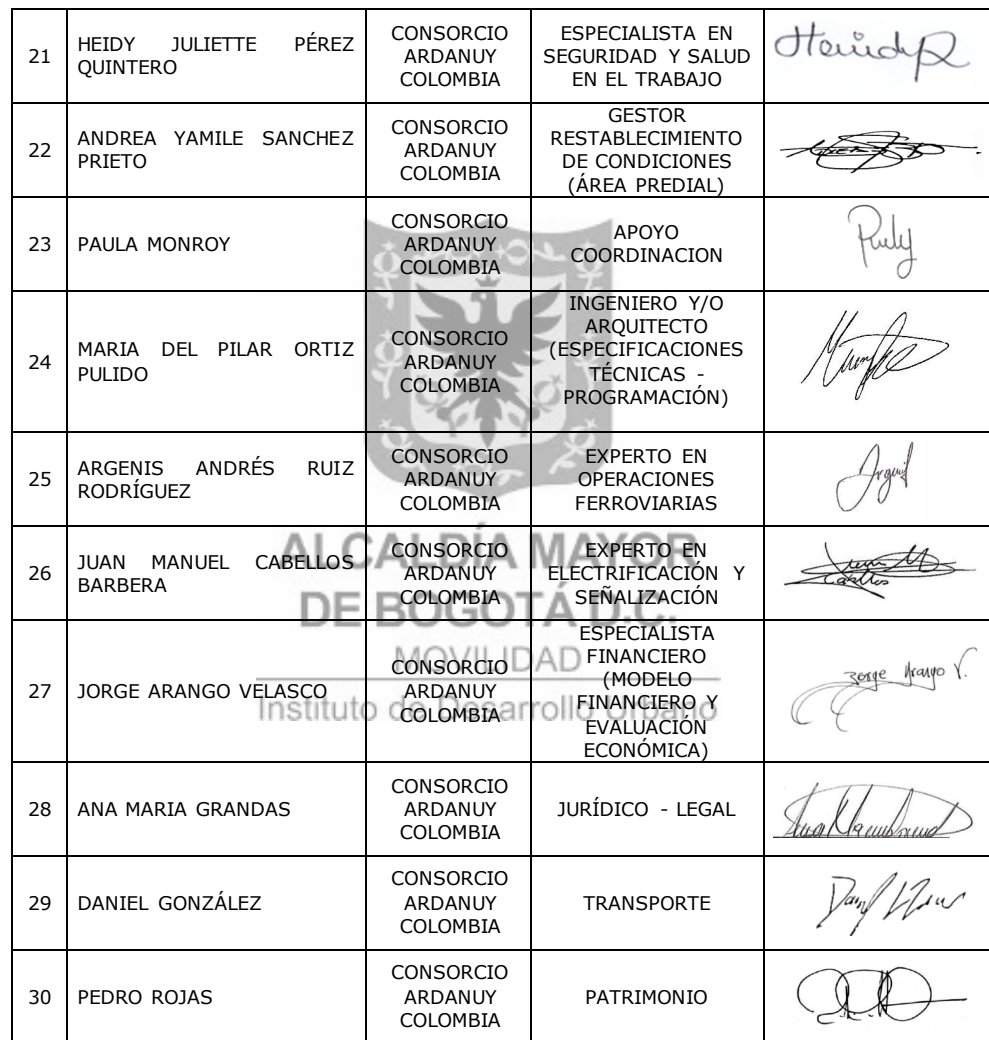 21
HEIDY JULIETTE PÉREZ
QUINTERO
CONSORCIO
ARDANUY
COLOMBIA
ESPECIALISTA EN
SEGURIDAD Y SALUD
EN EL TRABAJO
22
ANDREA YAMILE SANCHEZ
PRIETO
CONSORCIO
ARDANUY
COLOMBIA
GESTOR
RESTABLECIMIENTO
DE CONDICIONES
(ÁREA PREDIAL)
23
PAULA MONROY
CONSORCIO
ARDANUY
COLOMBIA
APOYO
COORDINACION
24
MARIA DEL PILAR ORTIZ
PULIDO
CONSORCIO
ARDANUY
COLOMBIA
INGENIERO Y/O
ARQUITECTO
(ESPECIFICACIONES
TÉCNICAS -
PROGRAMACIÓN)
25
ARGENIS ANDRÉS RUIZ
RODRÍGUEZ
CONSORCIO
ARDANUY
COLOMBIA
EXPERTO EN
OPERACIONES
FERROVIARIAS
26
JUAN MANUEL CABELLOS
BARBERA
CONSORCIO
ARDANUY
COLOMBIA
EXPERTO EN
ELECTRIFICACIÓN Y
SEÑALIZACIÓN
27
JORGE ARANGO VELASCO
CONSORCIO
ARDANUY
COLOMBIA
ESPECIALISTA
FINANCIERO
(MODELO
FINANCIERO Y
EVALUACIÓN
ECONÓMICA)
Jorge Arango V.
28
ANA MARIA GRANDAS
CONSORCIO
ARDANUY
COLOMBIA
JURÍDICO - LEGAL
29
DANIEL GONZÁLEZ
CONSORCIO
ARDANUY
COLOMBIA
TRANSPORTE
30
PEDRO ROJAS
CONSORCIO
ARDANUY
COLOMBIA
PATRIMONIO
ALCALDÍA MAYOR
DE BOGOTÁ D.C.
MOVILIDAD
Instituto de Desarrollo Urbano